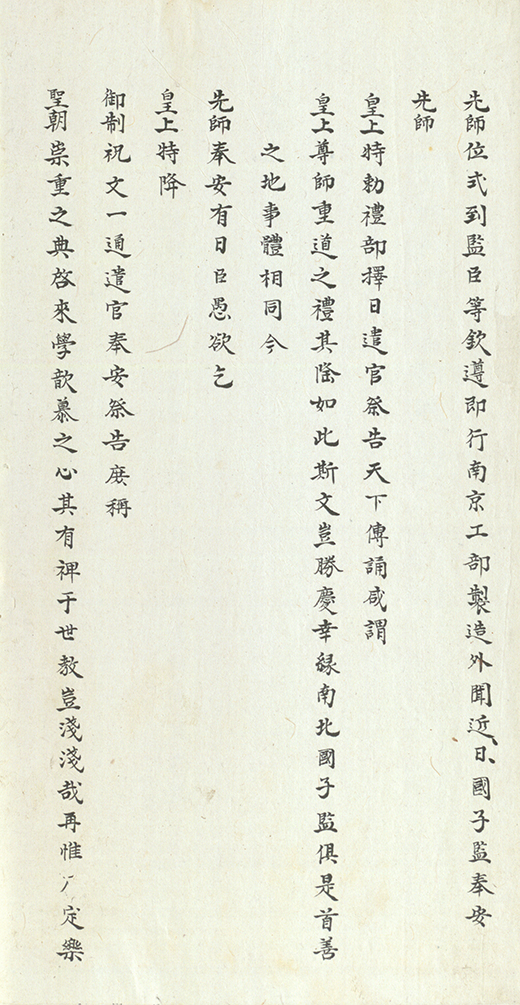 先師位式到監臣等欽遵即行南京工部製造外聞近日國子監奉安
先師
皇上特勅禮部擇日遣官祭告天下傳誦咸謂
皇上尊師重道之禮其隆如此斯文豈勝慶幸緣南北國子監俱是首善
之地事體相同今
先師奉安有日臣愚欲乞
皇上特降
御制祝文一通遣官奉安祭告庶稱
聖朝崇重之典啓來學歆慕之心其有裨于世教豈淺淺哉再惟 定樂